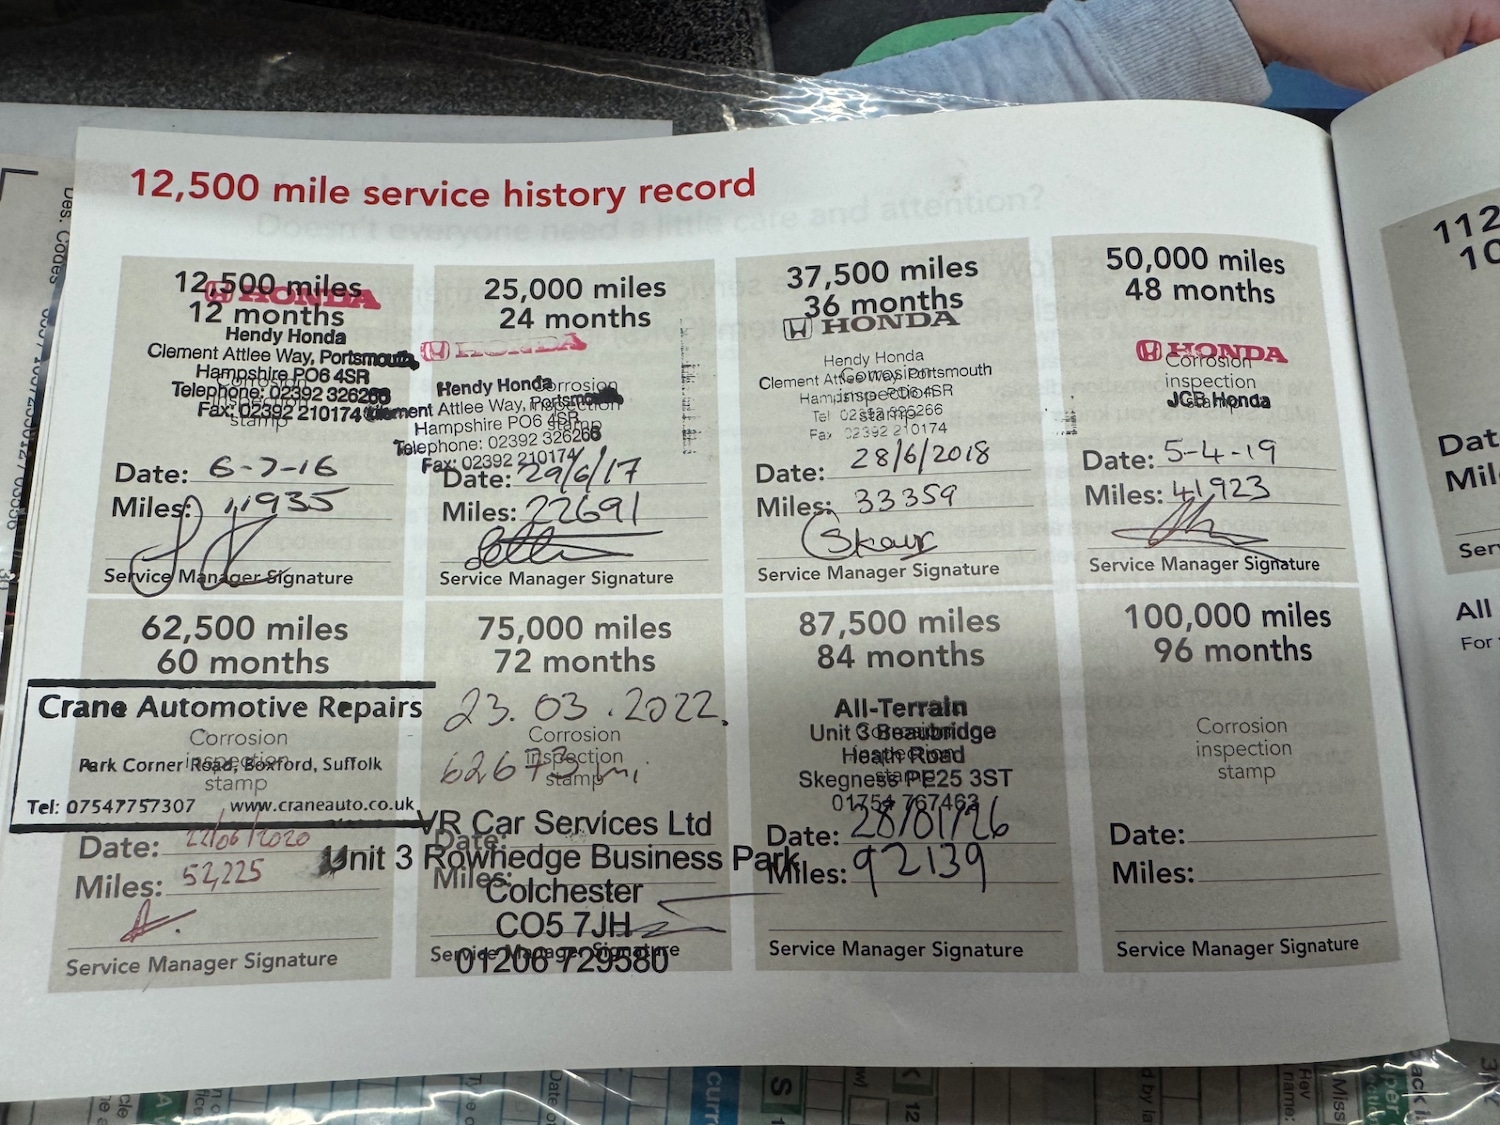 12,500 mile service history record
12,500 miles
12 months
HONDA
Hendy Honda
Clement Attlee Way, Portsmouth,
Hampshire PO6 4SR
Telephone: 02392 326266
Fax: 02392 210174
Corrosion
inspection
stamp
Date: 6-7-16
Miles: 11935
Service Manager Signature
25,000 miles
24 months
HONDA
Hendy Honda
Clement Attlee Way, Portsmouth
Hampshire PO6 4SR
Telephone: 02392 326266
Fax: 02392 210174
Corrosion
inspection
stamp
Date: 29/6/17
Miles: 22691
Service Manager Signature
37,500 miles
36 months
HONDA
Hendy Honda
Clement Attlee Way, Portsmouth
Hampshire PO6 4SR
Tel 02392 326266
Fax 02392 210174
Corrosion
inspection
stamp
Date: 28/6/2018
Miles: 33359
Service Manager Signature
50,000 miles
48 months
HONDA
Corrosion
inspection
stamp
JCB Honda
Date: 5-4-19
Miles: 41923
Service Manager Signature
62,500 miles
60 months
Crane Automotive Repairs
Corrosion
inspection
stamp
Park Corner Road, Boxford, Suffolk
Tel: 07547757307 www.craneauto.co.uk
Date: 22/06/2020
Miles: 52,225
Service Manager Signature
75,000 miles
72 months
23.03.2022.
Corrosion
inspection
stamp
62673 mi.
VR Car Services Ltd
Date:
Unit 3 Rowhedge Business Park
Miles:
Colchester
CO5 7JH
Service Manager Signature
01206 729580
87,500 miles
84 months
All-Terrain
Unit 3 Beaubridge
Heath Road
Skegness PE25 3ST
01754 767463
Corrosion
inspection
stamp
Date: 28/01/26
Miles: 92139
Service Manager Signature
100,000 miles
96 months
Corrosion
inspection
stamp
Date:
Miles:
Service Manager Signature
112
10
Dat
Mil
Ser
All
For
Des. Codes